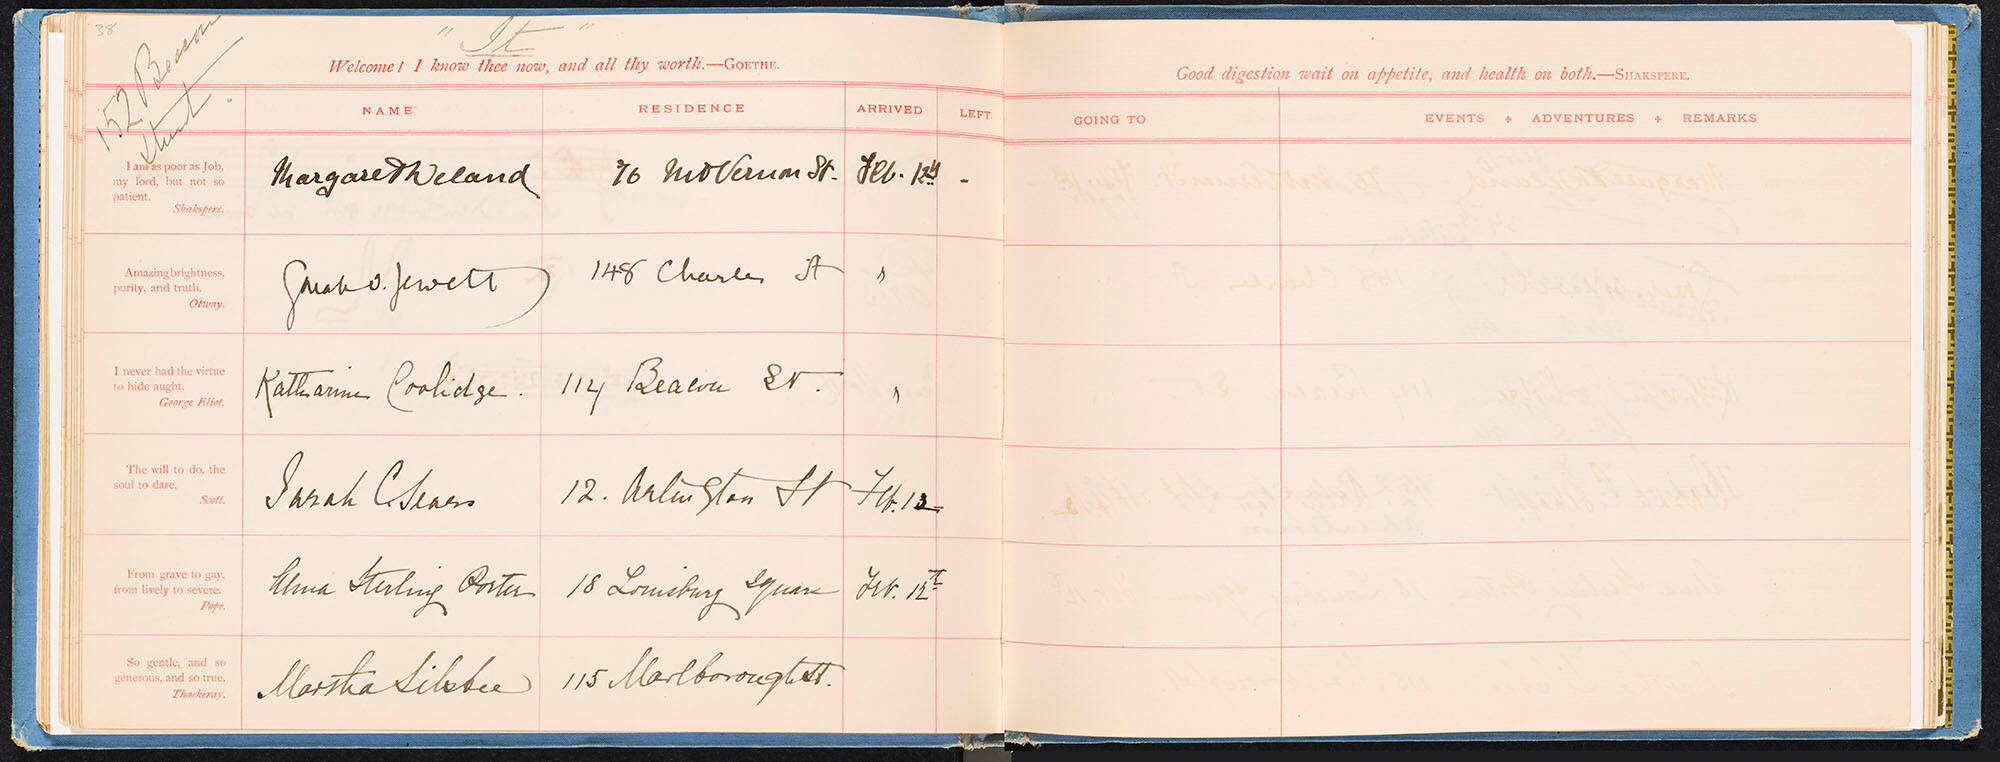 38
152 Beacon
Street
"It"
Welcome! I know thee now, and all thy worth.—GOETHE.
NAME RESIDENCE ARRIVED LEFT
I am as poor as Job,
my lord, but not so
patient.
Shakspere.
Margaret Weland 76 Mt Vernon St. Feb. 12th -
Amazing brightness,
purity, and truth.
Otway.
Sarah O. Jewett 148 Charles St "
I never had the virtue
to hide aught.
George Eliot.
Katharine Coolidge. 114 Beacon St. "
The will to do, the
soul to dare.
Scott.
Sarah C. Sears 12. Arlington St Feb. 12
From grave to gay,
from lively to severe.
Pope.
Alma Sterling Porter 18 Louisburg Square Feb. 12th
So gentle, and so
generous, and so true.
Thackeray.
Martha Silsbee 115 Marlborough St.
Good digestion wait on appetite, and health on both.—SHAKSPERE.
GOING TO EVENTS + ADVENTURES + REMARKS